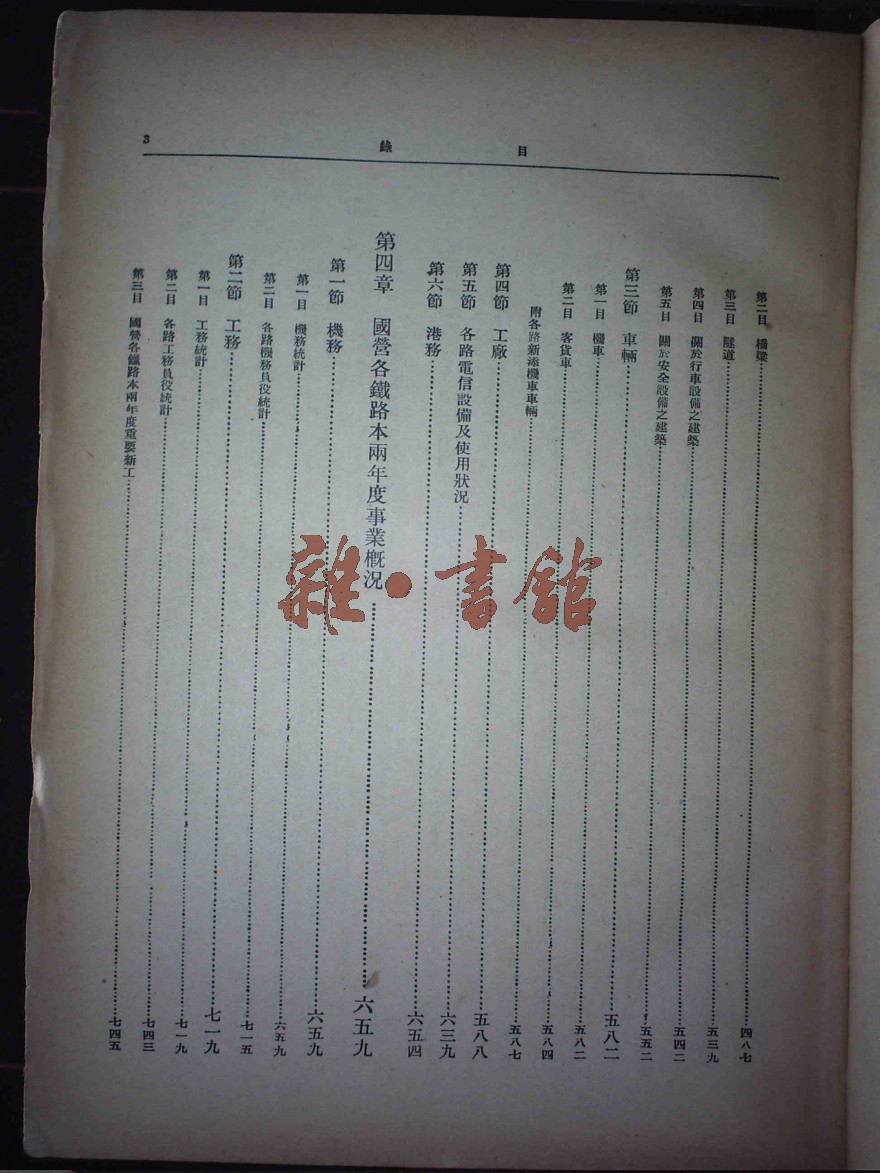 目錄
3
第二目 橋梁 四八七
第三目 隧道 五三九
第四目 關於行車設備之建築 五四二
第五目 關於安全設備之建築 五五二
第三節 車輛 五八二
第一目 機車 五八二
第二目 客貨車 五八四
附各路新添機車車輛 五八七
第四節 工廠 五八八
第五節 各路電信設備及使用狀況 六三九
第六節 港務 六五四
第四章 國營各鐵路本兩年度事業概況 六五九
第一節 機務 六五九
第一目 機務統計 六五九
第二目 各路機務員役統計 七一五
第二節 工務 七一九
第一目 工務統計 七一九
第二目 各路工務員役統計 七四三
第三目 國營各鐵路本兩年度重要新工 七四五
雜·書館